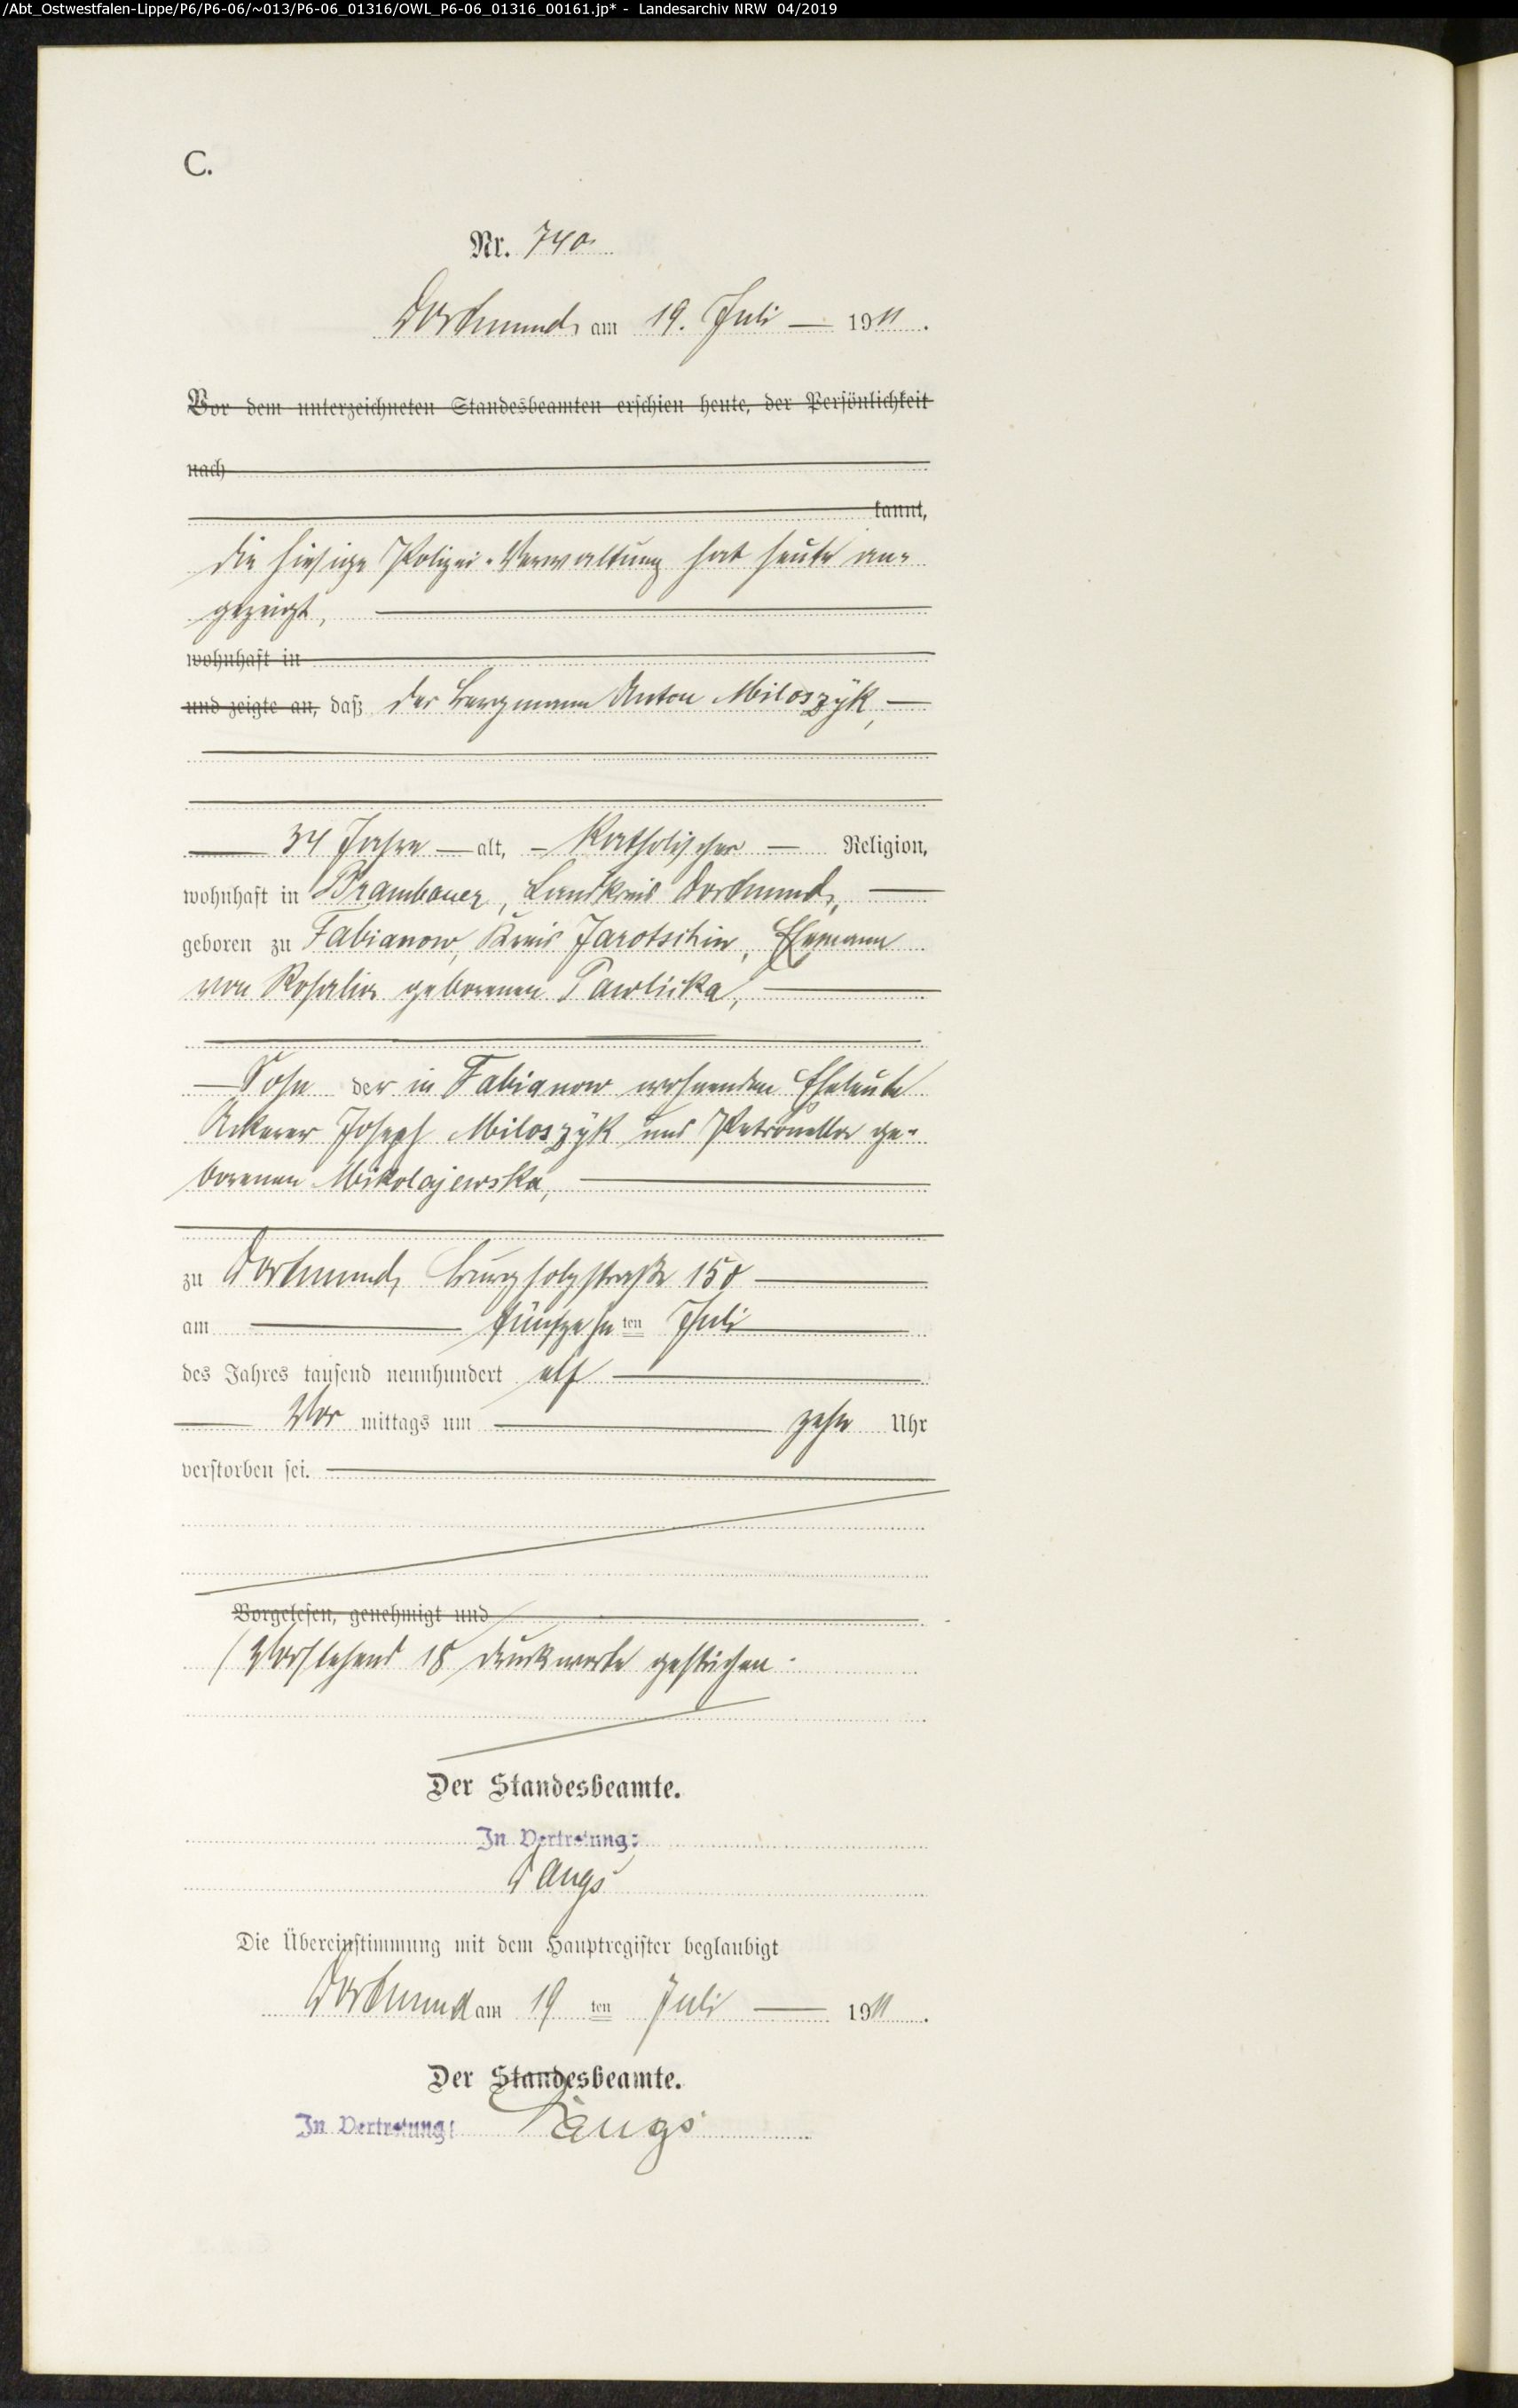 /Abt_Ostwestfalen-Lippe/P6/P6-06/~013/P6-06_01316/OWL_P6-06_01316_00161.jp* - Landesarchiv NRW 04/2019
C.
Nr. 740
Dortmund, am 19. Juli 1911.
Vor dem unterzeichneten Standesbeamten erschien heute, der Persönlichkeit
nach
kannt,
die hiesige Polizei-Verwaltung hat heute an-
gezeigt,
wohnhaft in
und zeigte an, daß der Bergmann Anton Miloszÿk,
34 Jahre alt, Katholischer Religion,
wohnhaft in Brambauer, Landkreis Dortmund,
geboren zu Fabianow, Kreis Jarotschin, Ehemann
von Rosalia geborenen Pawlicka,
Sohn der in Fabianow wohnenden Eheleute
Ackerer Joseph Miloszÿk und Petronella ge-
borenen Mikolajewska,
zu Dortmund, Burgholzstraße 150
am fünfzehnten Juli
des Jahres tausend neunhundert elf
Vormittags um zehn Uhr
verstorben sei.
Vorgelesen, genehmigt und
Vorstehend 18 Druckworte gestrichen.
Der Standesbeamte.
In Vertretung:
Die Übereinstimmung mit dem Hauptregister beglaubigt
Dortmund am 19 ten Juli 1911.
Der Standesbeamte.
In Vertretung: